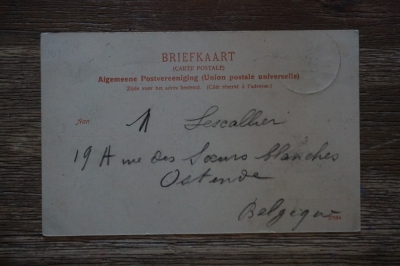 BRIEFKAART
(CARTE POSTALE)
Algemeene Postvereeniging (Union postale universelle)
Zijde voor het adres bestemd. (Côté réservé à l'adresse.)
Aan M Lescallier
19 A rue des Sœurs blanches
Ostende
Belgique